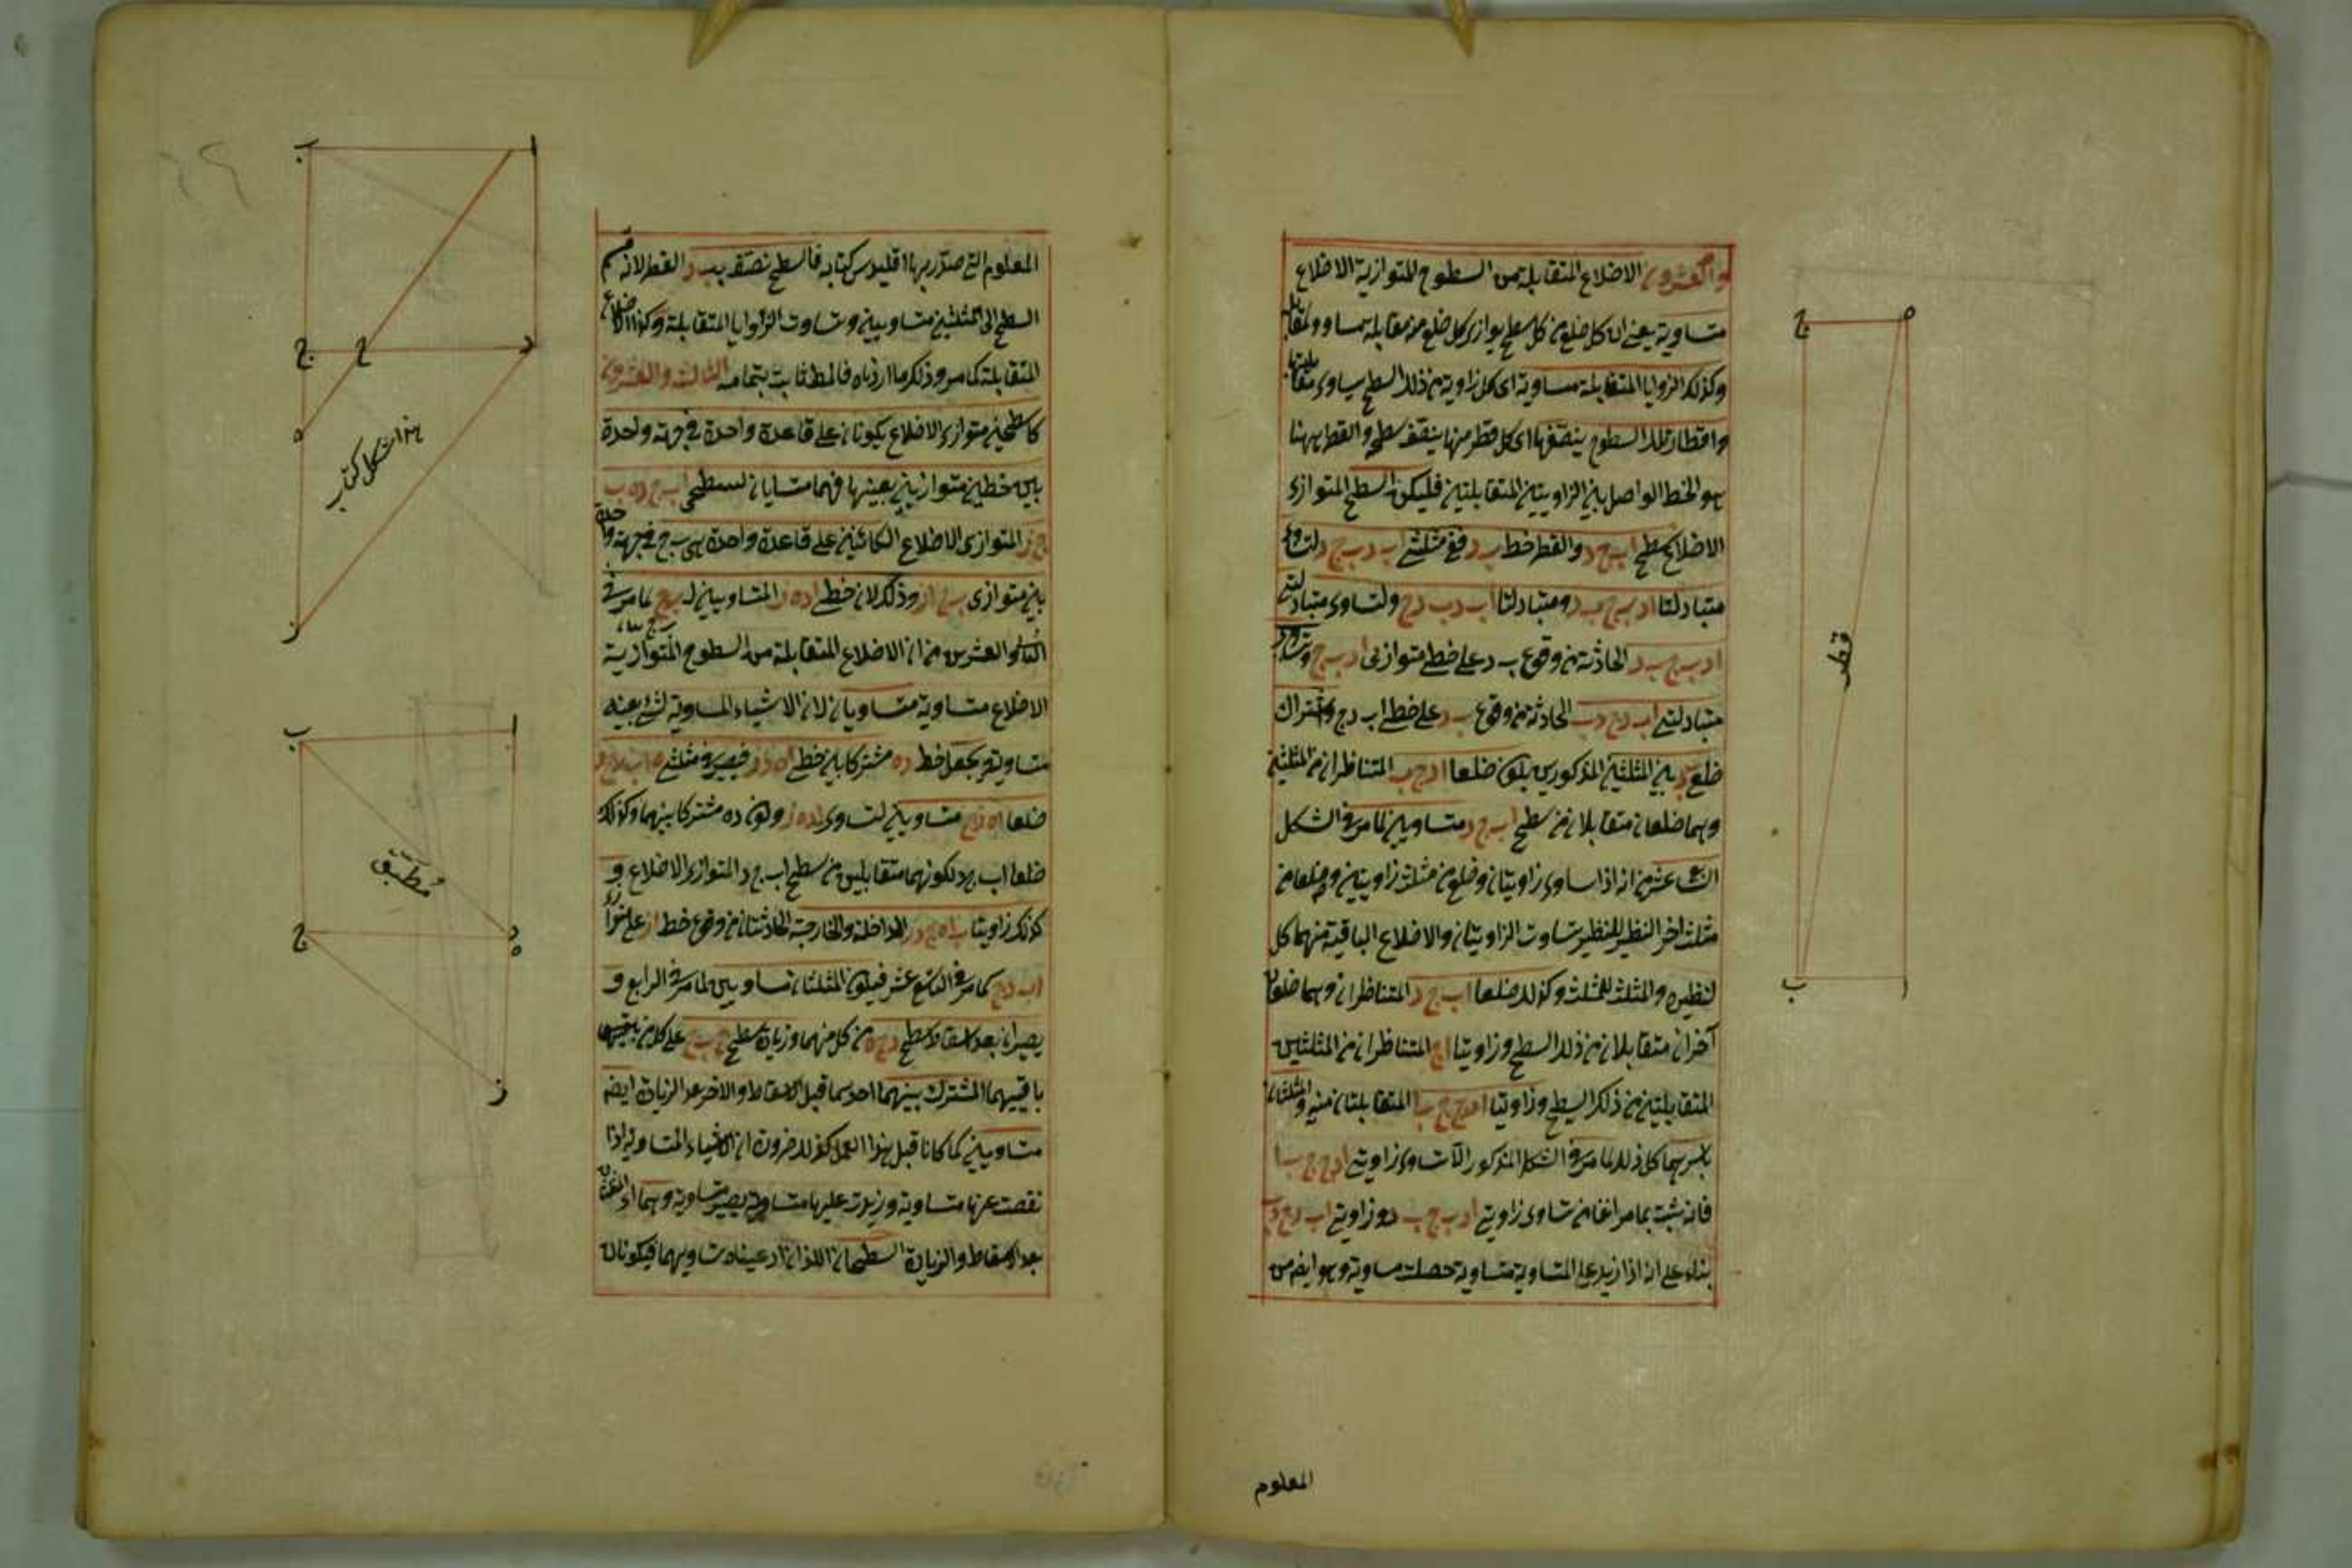 والعشرون الاضلاع المتقابلة من السطوح المتوازية الاضلاع
متساوية يعني ان كل ضلع من كل سطح يوازي كل ضلع من مقابله مساو ولمقابل
وكذلك الزوايا المتقابلة متساوية اى كل زاوية من ذلك السطح يساوى مقابلتها
واقطار تلك السطوح ينصفها اى كل قطر منها ينصف سطحه والقطر ههنا
هو الخط الواصل بين الزاويتين المتقابلتين فليكن السطح المتوازى
الاضلاع سطح اب ج د والقطر خط ب د ففى مثلثى اب د ب ج د لتساوى
متبادلتا اد ب ج ب د ومتبادلتا اب د ب دج ولتساوى متبادلتى
اد ب ج ب د الحادثة من وقوع ب د على خطى متوازيى اد ب ج وتساوى
متبادلتى اب د ج د ب الحادثة من وقوع ب د على خطى اب دج واشتراك
ضلع ب د بين المثلثين المذكورين يكون ضلعا اد ج ب المتناظران من المثلثين
وهما ضلعان متقابلان من سطح اب ج د متساويين لما مر فى الشكل
من انه اذا ساوى زاويتان وضلع من مثلث زاويتين وضلعا من
مثلث اخر النظير للنظير تساوت الزاويتان والاضلاع الباقية منهما كل
لنظيره والمثلث للمثلث وكذلك ضلعا اب ج د المتناظران وهما ضلعان
آخران متقابلان من ذلك السطح وزاويتا اج المتناظران من المثلثين
المتقابلتين من ذلك السطح وزاويتا ا د ج ج ب ا المتقابلتان منه والمثلثان
باسرهما كل ذلك لما مر فى الشكل المذكور الا تساوى زاويتى ا د ج ج ب ا
فانه ثبت بما مر انفا من تساوى زاويتى اد ب ج ب د وزاويتى اب د ج د ب
بناء على انه اذا زيد على المتساوية متساوية حصلت متساوية وهو ايضا من
المعلوم
ج
ه
قطر
ب
ا
المعلوم التى صدر بها اقليدس كتابه فالسطح نصفه ب د القطر لانه قسم
السطح الى المثلثين متساويين وتساوت الزوايا المتقابلة وكذا الاضلاع
المتقابلة كما مر وذلك ما اردناه فالمط ثابت بتمامه الثالث والعشرون
كل سطحين متوازى الاضلاع يكونان على قاعدة واحدة فى جهة واحدة
بين خطين متوازيين بعينهما فهما متساويان كسطحى اب ج د ه ب
ج ز المتوازى الاضلاع الكائنين على قاعدة واحدة هى ب ج فى جهة واحدة
بين متوازى ب ج از وذلك لان خطى اد ه ز المتساويين ل ب ج لما مر فى
والعشرين من ان الاضلاع المتقابلة من السطوح المتوازية
الاضلاع متساوية متساويان لان الاشياء المساوية لشئ بعينه
متساوية ويجعل خط ده مشتركا بين خطى اد ه ز فيصير فى مثلثى
ضلعا اه ز د متساويين لتساوى اد ه ز وكون ده مشتركا بينهما وكذلك
ضلعا اب ج د لكونهما متقابلين من سطح اب ج د المتوازى الاضلاع و
كذلك زاويتا ب اه ج د ز الداخلة والخارجة الحادثتان من وقوع خط از على
اب دج كما مر فى التاسع عشر فيكون المثلثان متساويين لما مر فى الرابع و
يصيران بعد اسقاط سطح د ح ه من كل منهما وزيادة سطح ح ب ج على كل من باقيهما
باقييهما المشترك بينهما احدهما قبل الاسقاط والاخر بعد الزيادة ايضا
متساويين كما كانا قبل هذا العمل كذلك ضرورة ان الاشياء المتساوية اذا
نقصت عنها متساوية وزيدت عليها متساوية يصير متساوية وهما اى المثلثان
بعد الاسقاط والزيادة السطحان اللذان ادعيناه تساويهما فيكونان
ب
ا
ج
ح
د
ه
هذا شكل كتاب
ز
ب
ا
مطبق
ج
د
ه
ز